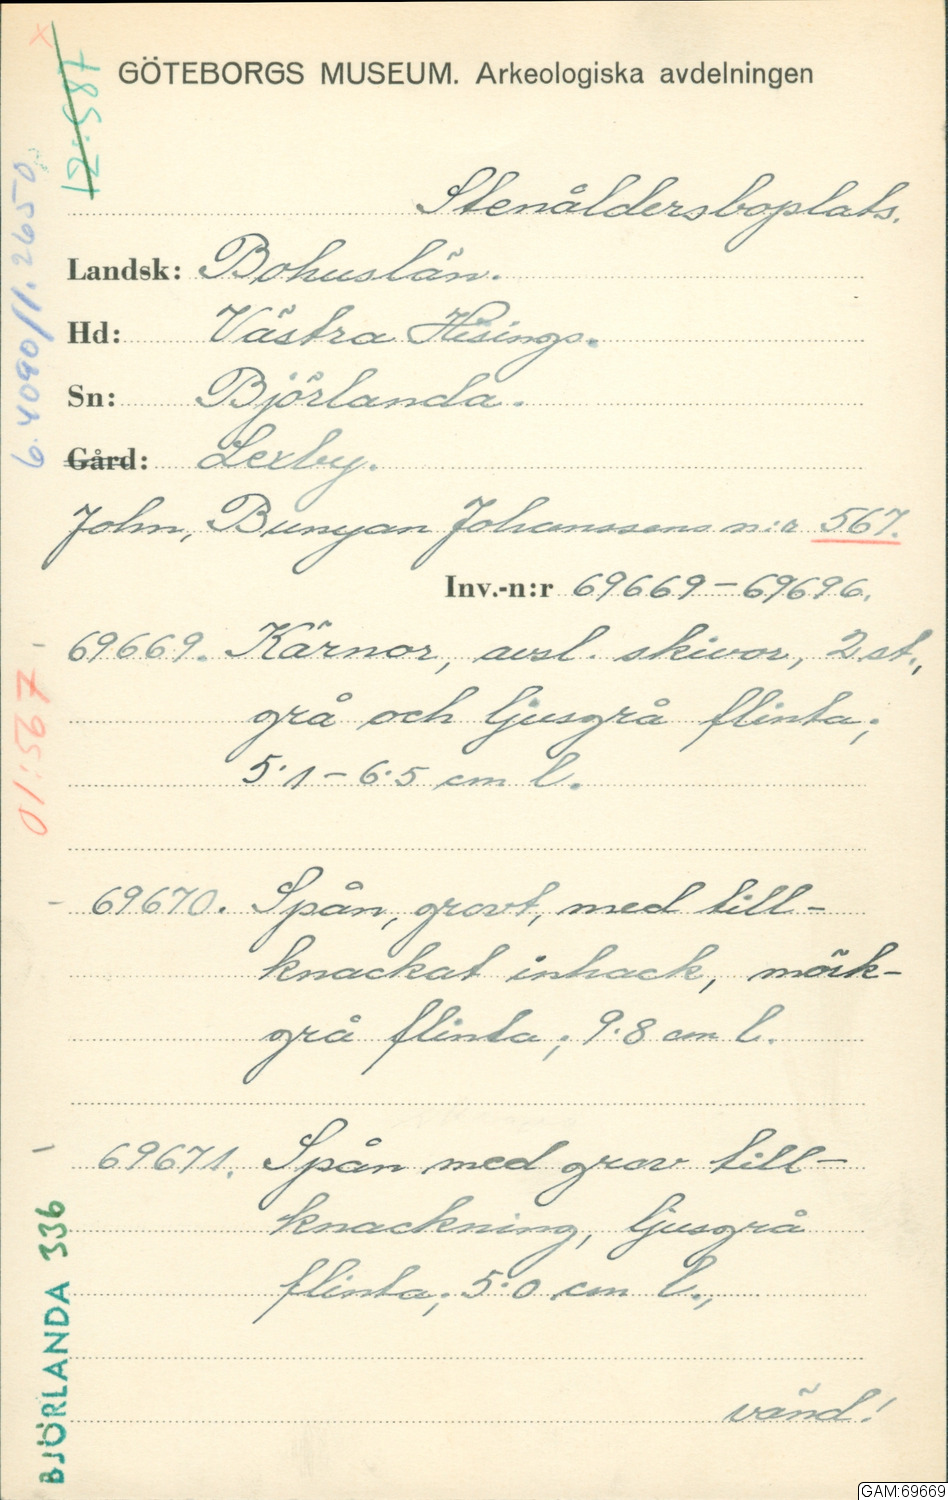 GÖTEBORGS MUSEUM. Arkeologiska avdelningen
Stenåldersboplats.
Landsk: Bohuslän.
Hd: Västra Hisings.
Sn: Björlanda.
Gård: Lexby.
John, Bunyan Johanssons n:r 567.
Inv.-n:r 69669-69696.
69669. Kärnor, avsl. skivor, 2 st.,
grå och ljusgrå flinta;
5.1-6.5 cm l.
69670. Spån, grovt, med till-
knackat inhack, mörk-
grå flinta; 9.8 cm l.
69671. Spån med grov till-
knackning, ljusgrå
flinta; 5.0 cm l.,
vänd!
12:587
6.4090/1.2650
01:567
BJÖRLANDA 336
GAM:69669